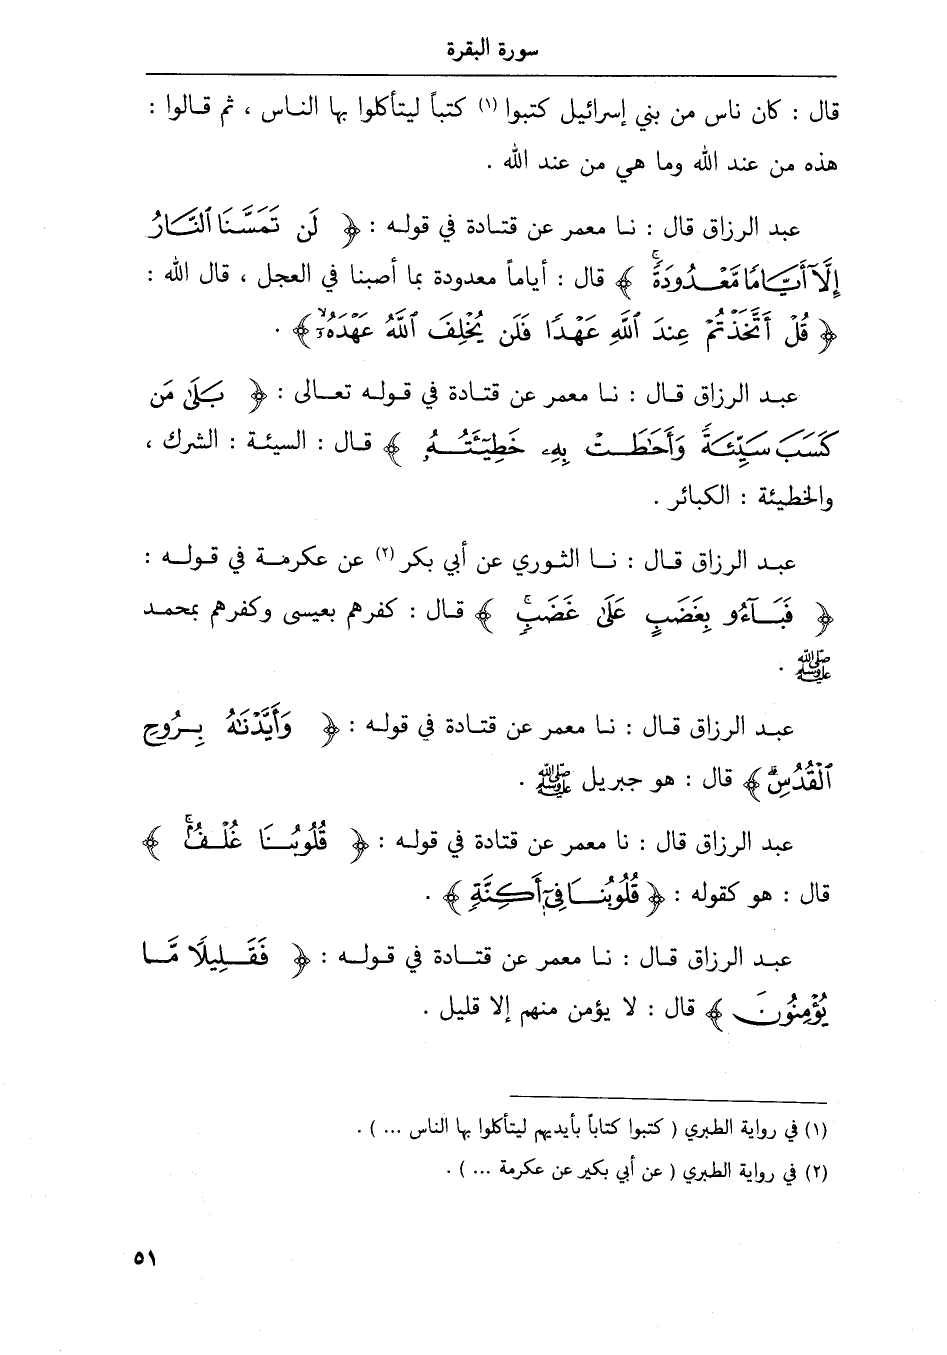 سورة البقرة
قال : كان ناس من بني إسرائيل كتبوا (١) كتباً ليتأكلوا بها الناس ، ثم قالوا :
هذه من عند الله وما هي من عند الله .
عبد الرزاق قال : نا معمر عن قتادة في قوله : ﴿ لَن تَمَسَّنَا ٱلنَّارُ
إِلَّآ أَيَّامًا مَّعْدُودَةً ﴾ قال : أياماً معدودة بما أصبنا في العجل ، قال الله :
﴿ قُلْ أَتَّخَذْتُمْ عِندَ ٱللَّهِ عَهْدًا فَلَن يُخْلِفَ ٱللَّهُ عَهْدَهُۥٓ ﴾ .
عبد الرزاق قال : نا معمر عن قتادة في قوله تعالى : ﴿ بَلَىٰ مَن
كَسَبَ سَيِّئَةً وَأَحَٰطَتْ بِهِۦ خَطِيٓـَٔتُهُۥ ﴾ قال : السيئة : الشرك ،
والخطيئة : الكبائر .
عبد الرزاق قال : نا الثوري عن أبي بكر (٢) عن عكرمة في قوله :
﴿ فَبَآءُو بِغَضَبٍ عَلَىٰ غَضَبٍ ﴾ قال : كفرهم بعيسى وكفرهم بمحمد
ﷺ .
عبد الرزاق قال : نا معمر عن قتادة في قوله : ﴿ وَأَيَّدْنَٰهُ بِرُوحِ
ٱلْقُدُسِ ﴾ قال : هو جبريل ﷺ .
عبد الرزاق قال : نا معمر عن قتادة في قوله : ﴿ قُلُوبُنَا غُلْفٌ ﴾
قال : هو كقوله : ﴿ قُلُوبُنَا فِىٓ أَكِنَّةٍ ﴾ .
عبد الرزاق قال : نا معمر عن قتادة في قوله : ﴿ فَقَلِيلًا مَّا
يُؤْمِنُونَ ﴾ قال : لا يؤمن منهم إلا قليل .
(١) في رواية الطبري ( كتبوا كتاباً بأيديهم ليتأكلوا بها الناس ... ) .
(٢) في رواية الطبري ( عن أبي بكير عن عكرمة ... ) .
٥١